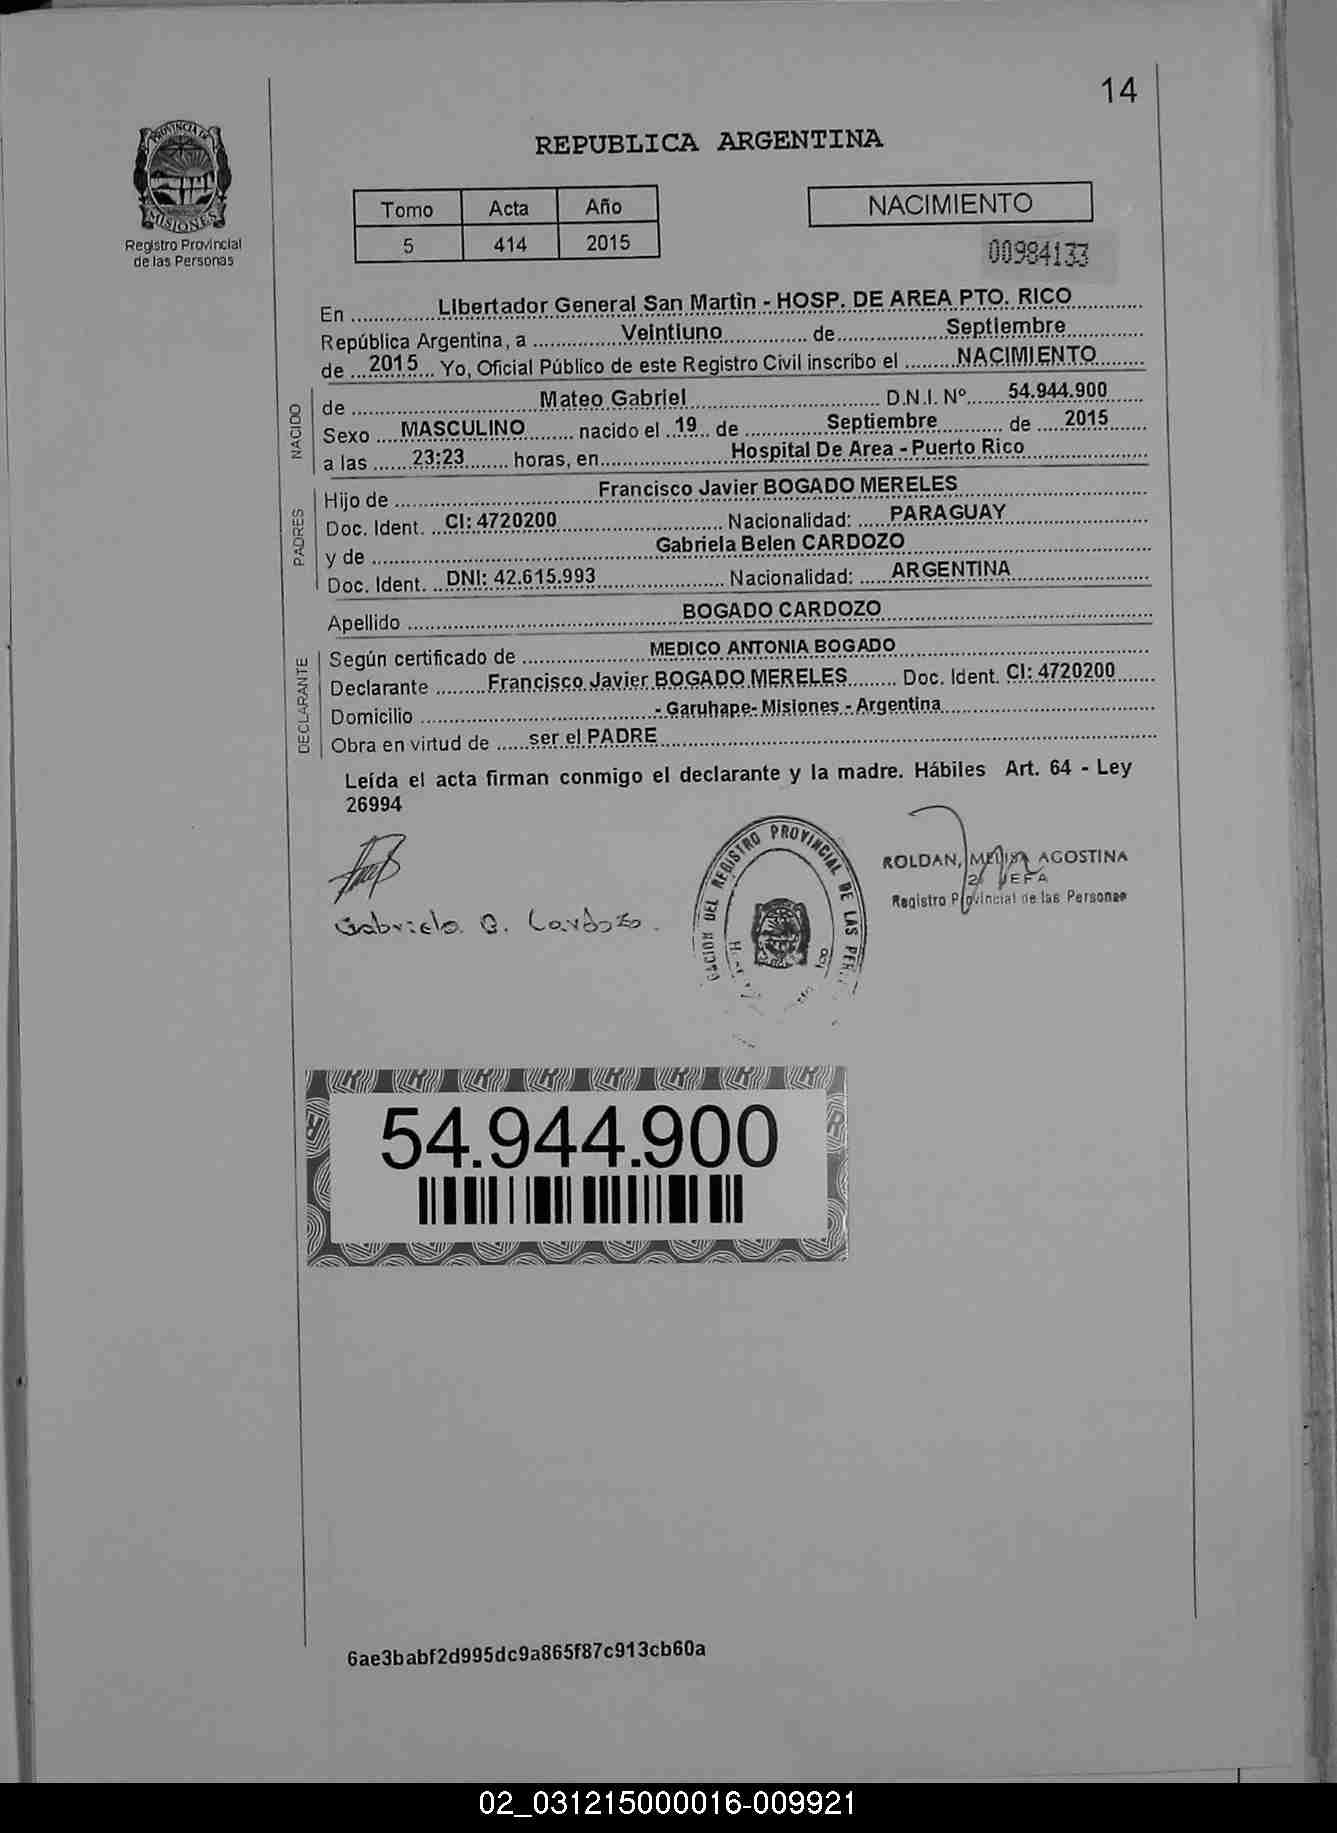 14
PROVINCIA DE
MISIONES
Registro Provincial
de las Personas
REPUBLICA ARGENTINA
Tomo Acta Año
5 414 2015
NACIMIENTO
00984133
En .............. Libertador General San Martin - HOSP. DE AREA PTO. RICO
República Argentina, a ........ Veintiuno ........ de ........ Septiembre
de ... 2015 ... Yo, Oficial Público de este Registro Civil inscribo el ........ NACIMIENTO
NACIDO
de ........ Mateo Gabriel ........ D.N.I. Nº ...... 54.944.900
Sexo .... MASCULINO ........ nacido el ..19.. de ........ Septiembre ........ de ..... 2015
a las ...... 23:23 ........ horas, en ........ Hospital De Area - Puerto Rico
PADRES
Hijo de ........ Francisco Javier BOGADO MERELES
Doc. Ident. .. CI: 4720200 ........ Nacionalidad: ..... PARAGUAY
y de ........ Gabriela Belen CARDOZO
Doc. Ident. .. DNI: 42.615.993 ........ Nacionalidad: ..... ARGENTINA
Apellido ........ BOGADO CARDOZO
DECLARANTE
Según certificado de ........ MEDICO ANTONIA BOGADO
Declarante ........ Francisco Javier BOGADO MERELES ........ Doc. Ident. CI: 4720200
Domicilio ........ - Garuhape- Misiones - Argentina
Obra en virtud de ...... ser el PADRE
Leída el acta firman conmigo el declarante y la madre. Hábiles Art. 64 - Ley
26994
Gabriela B. Cardozo.
DEL REGISTRO PROVINCIAL DE LAS PER
ROLDAN, AGOSTINA
JEFA
Registro Provincial de las Personas
54.944.900
6ae3babf2d995dc9a865f87c913cb60a
02_031215000016-009921